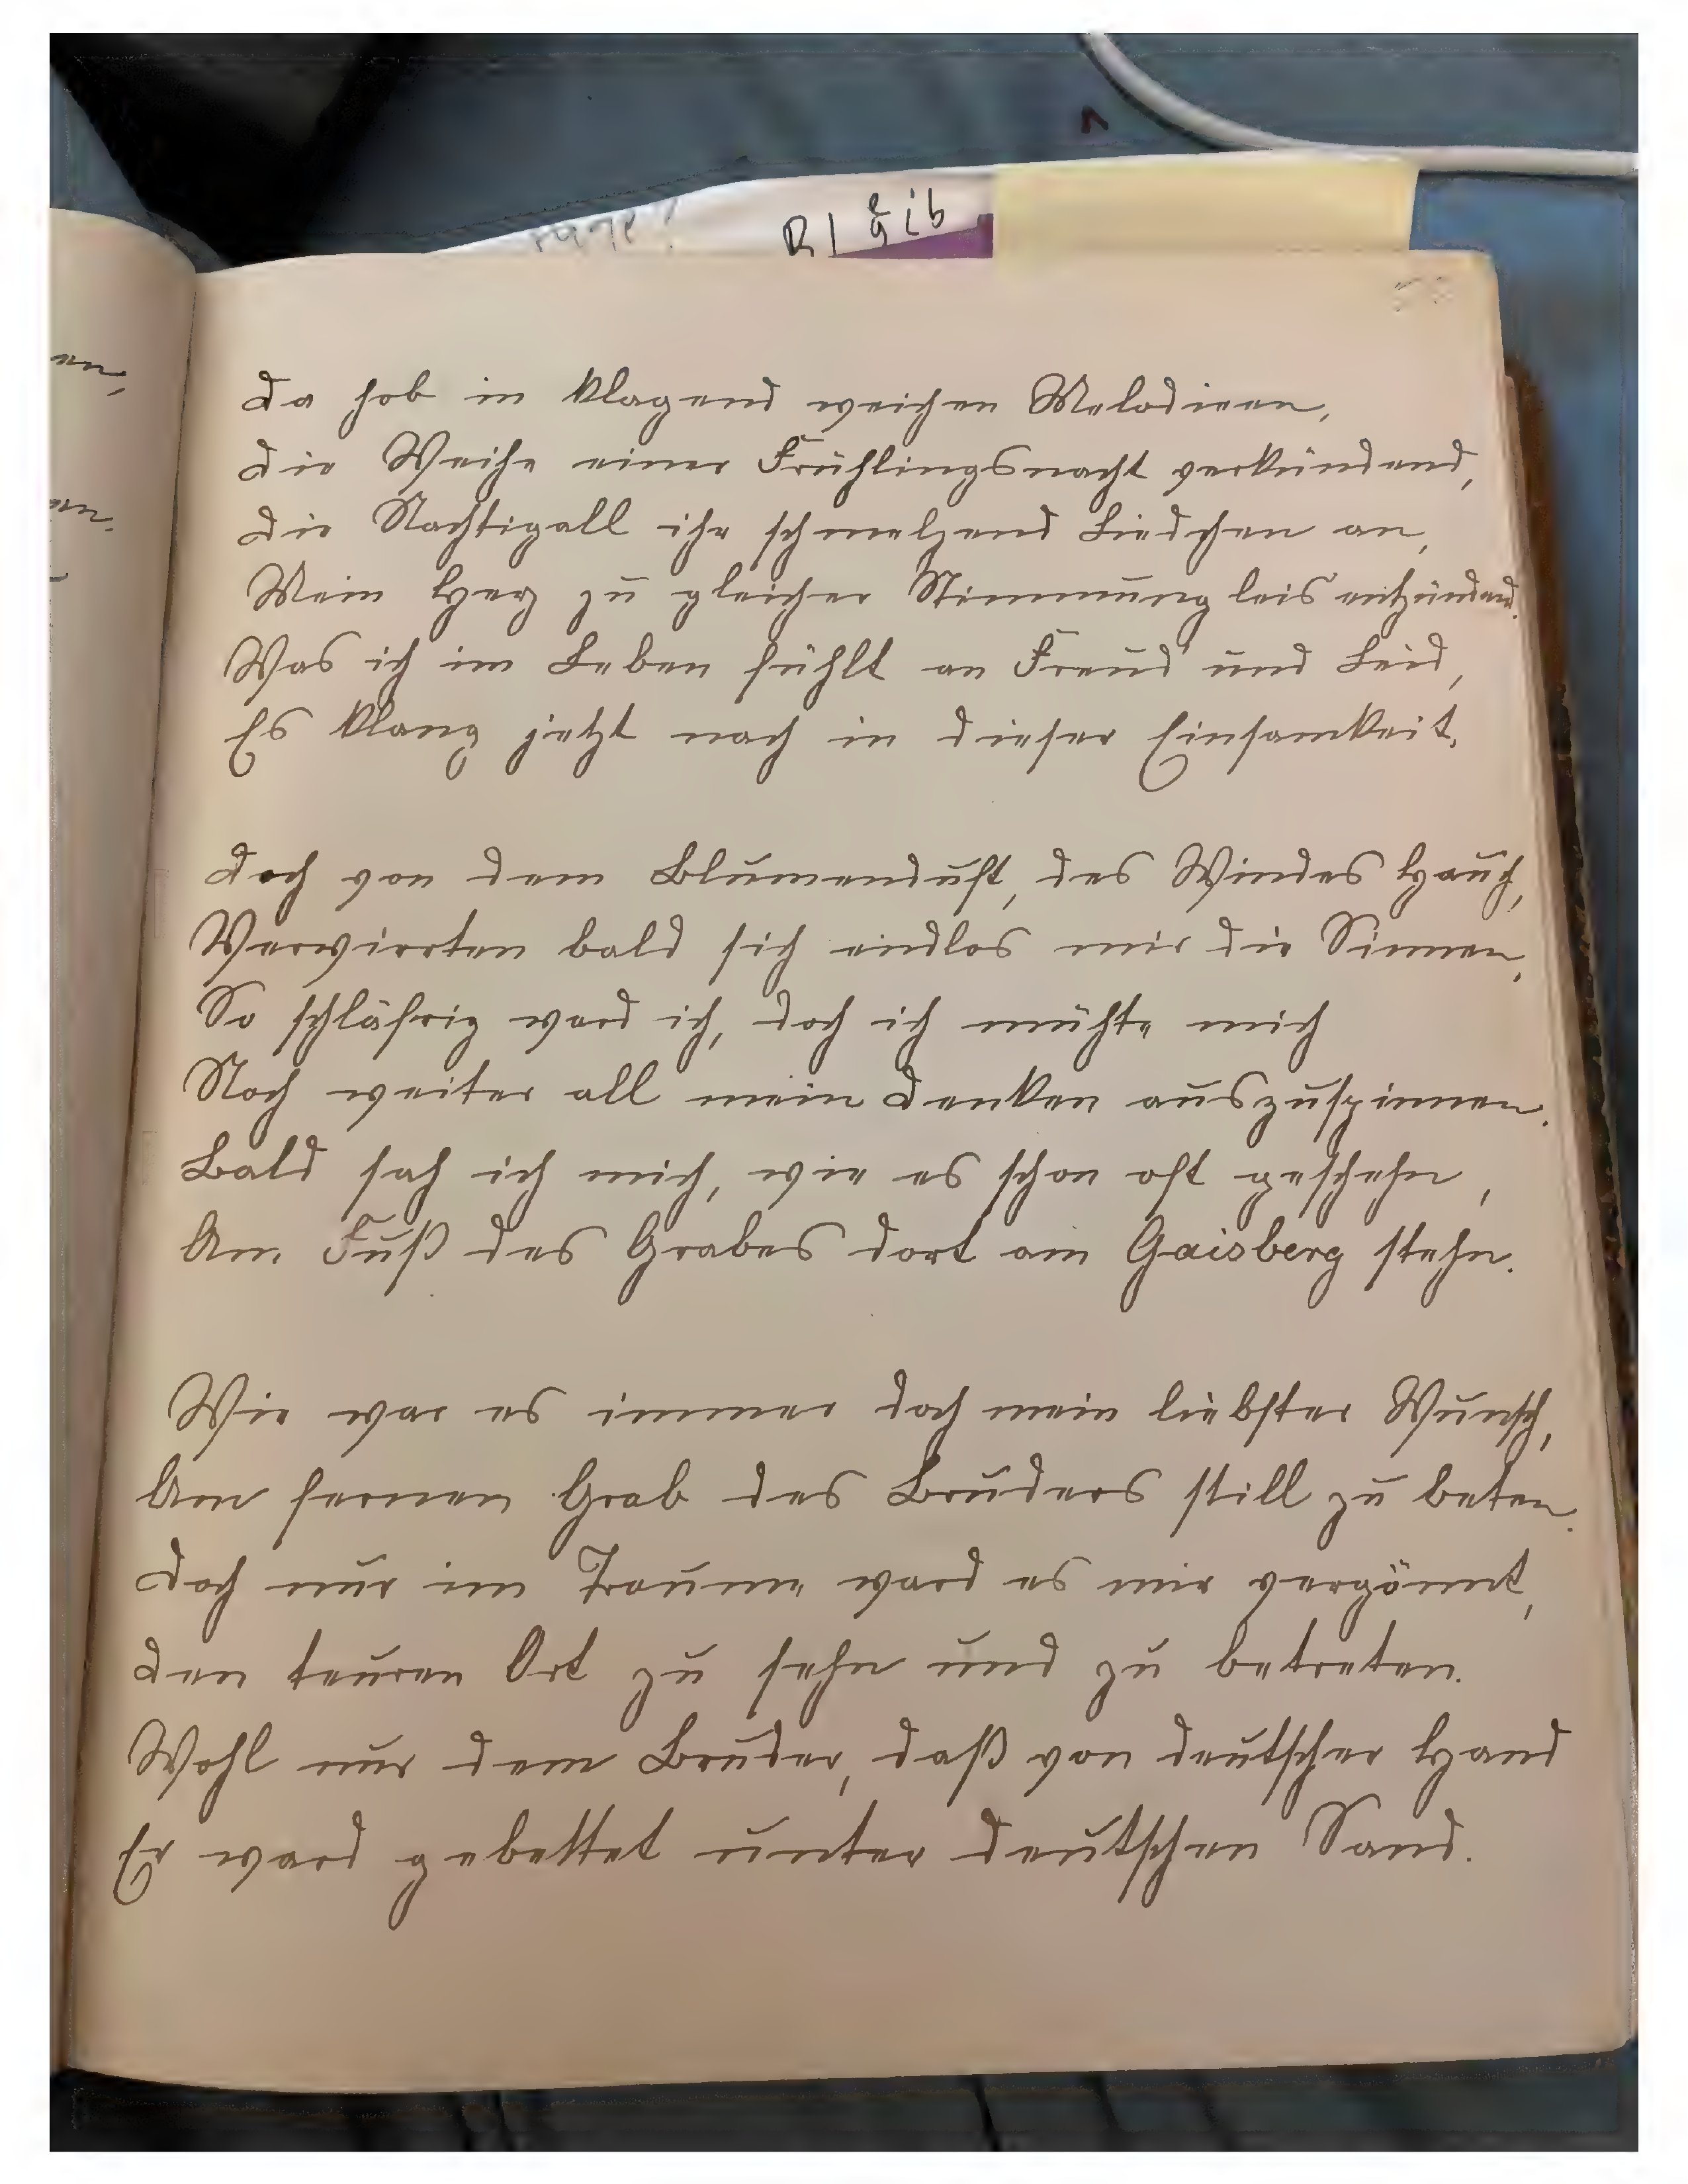 en,
en.
R I gib
Da hob in klagend weichen Melodieen,
Die Weihe einer Frühlingsnacht verkündend,
Die Nachtigall ihr schmelzend Liedchen an,
Mein Herz zu gleicher Stimmung leis entzündend.
Was ich im Leben fühlt an Freud' und Leid,
Es klang jetzt nach in dieser Einsamkeit.
Doch von dem Blumenduft, des Windes Hauch,
Verwirrten bald sich endlos mir die Sinnen,
So schläfrig ward ich, doch ich mühte mich
Noch weiter all mein Denken auszuspinnen.
Bald sah ich mich, wie es schon oft geschehn,
Am Fuß des Grabes dort am Gaisberg stehn.
Wie war es immer doch mein liebster Wunsch,
Am fernen Grab des Bruders still zu beten.
Doch nur im Traume ward es mir vergönnt,
Den teuren Ort zu sehn und zu betreten.
Wohl nur dem Bruder, daß von deutscher Hand
Er ward gebettet unter deutschen Sand.